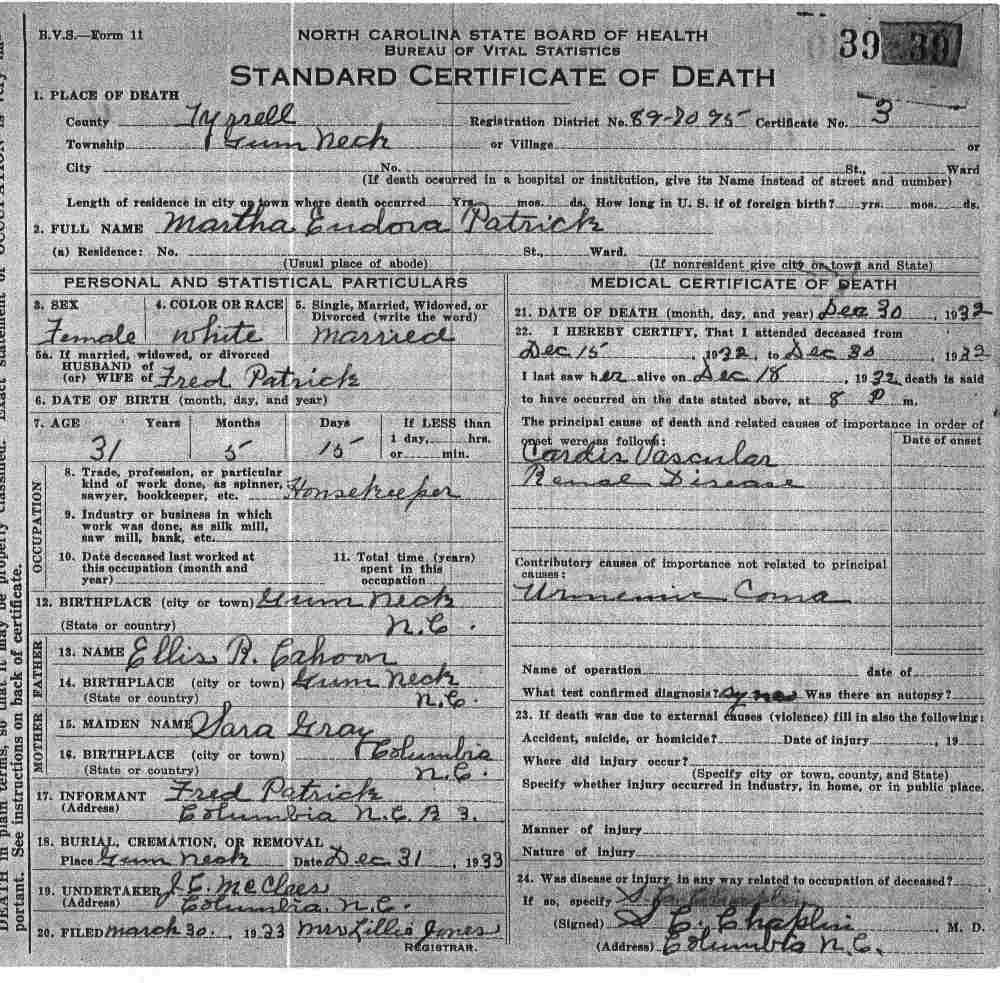 B.V.S.—Form 11
NORTH CAROLINA STATE BOARD OF HEALTH
BUREAU OF VITAL STATISTICS
39 30
STANDARD CERTIFICATE OF DEATH
1. PLACE OF DEATH
County Tyrrell Registration District No. 89-8095 Certificate No. 3
Township Gum Neck or Village or
City No. St., Ward
(If death occurred in a hospital or institution, give its Name instead of street and number)
Length of residence in city or town where death occurred Yrs. mos. ds. How long in U. S. if of foreign birth? yrs. mos. ds.
2. FULL NAME Martha Eudora Patrick
(a) Residence: No. St., Ward.
(Usual place of abode) (If nonresident give city or town and State)
PERSONAL AND STATISTICAL PARTICULARS
3. SEX 4. COLOR OR RACE 5. Single, Married, Widowed, or
Divorced (write the word)
Female white married
5a. If married, widowed, or divorced
HUSBAND of
(or) WIFE of Fred Patrick
6. DATE OF BIRTH (month, day, and year)
7. AGE Years Months Days If LESS than
1 day, hrs.
31 5 15 or min.
OCCUPATION
8. Trade, profession, or particular
kind of work done, as spinner,
sawyer, bookkeeper, etc. Housekeeper
9. Industry or business in which
work was done, as silk mill,
saw mill, bank, etc.
10. Date deceased last worked at
this occupation (month and
year)
11. Total time (years)
spent in this
occupation
12. BIRTHPLACE (city or town) Gum Neck
(State or country) N.C.
FATHER
13. NAME Ellis R. Cahoon
14. BIRTHPLACE (city or town) Gum Neck
(State or country) N.C.
MOTHER
15. MAIDEN NAME Sara Gray
16. BIRTHPLACE (city or town) Columbia
(State or country) N.C.
17. INFORMANT Fred Patrick
(Address) Columbia N.C. R 3.
18. BURIAL, CREMATION, OR REMOVAL
Place Gum Neck Date Dec 31, 1933
19. UNDERTAKER J.E. McClees
(Address) Columbia, N.C.
20. FILED march 30, 1933 Mrs Lillie Jones
REGISTRAR.
MEDICAL CERTIFICATE OF DEATH
21. DATE OF DEATH (month, day, and year) Dec 30, 1932
22. I HEREBY CERTIFY, That I attended deceased from
Dec 15, 1932, to Dec 30, 1932
I last saw her alive on Dec 18, 1932, death is said
to have occurred on the date stated above, at 8 P m.
The principal cause of death and related causes of importance in order of
onset were as follows: Date of onset
Cardio Vascular
Renal Disease
Contributory causes of importance not related to principal
causes:
Uraemic Coma
Name of operation date of
What test confirmed diagnosis? Was there an autopsy?
23. If death was due to external causes (violence) fill in also the following:
Accident, suicide, or homicide? Date of injury, 19
Where did injury occur?
(Specify city or town, county, and State)
Specify whether injury occurred in industry, in home, or in public place.
Manner of injury
Nature of injury
24. Was disease or injury in any way related to occupation of deceased?
If so, specify
(Signed) S C. Chaplin, M. D.
(Address) Columbia N.C.
DEATH in plain terms, so that it may be properly classified. Exact statement of OCCUPATION is very
portant. See instructions on back of certificate.